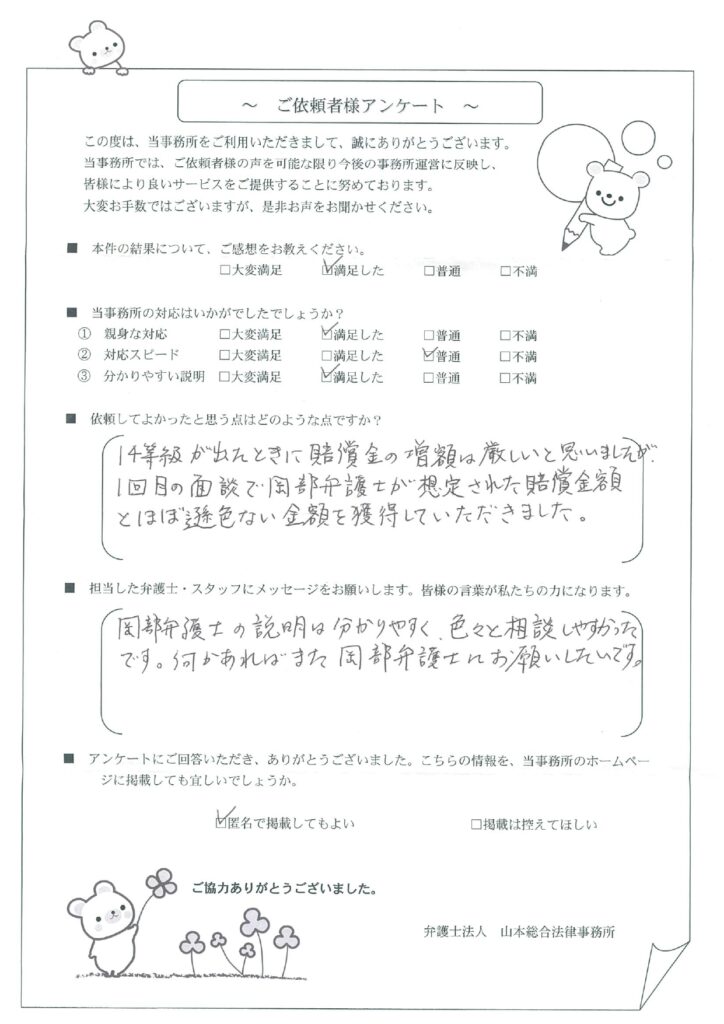 ～ ご依頼者様アンケート ～
この度は、当事務所をご利用いただきまして、誠にありがとうございます。
当事務所では、ご依頼者様の声を可能な限り今後の事務所運営に反映し、
皆様により良いサービスをご提供することに努めております。
大変お手数ではございますが、是非お声をお聞かせください。
■ 本件の結果について、ご感想をお教えください。
□大変満足 ☑満足した □普通 □不満
■ 当事務所の対応はいかがでしたでしょうか？
① 親身な対応 □大変満足 ☑満足した □普通 □不満
② 対応スピード □大変満足 □満足した ☑普通 □不満
③ 分かりやすい説明 □大変満足 ☑満足した □普通 □不満
■ 依頼してよかったと思う点はどのような点ですか？
14等級が出たときに賠償金の増額は厳しいと思いましたが、
1回目の面談で岡部弁護士が想定された賠償金額
とほぼ遜色ない金額を獲得していただきました。
■ 担当した弁護士・スタッフにメッセージをお願いします。皆様の言葉が私たちの力になります。
岡部弁護士の説明は分かりやすく、色々と相談しやすかった
です。何かあればまた岡部弁護士にお願いしたいです。
■ アンケートにご回答いただき、ありがとうございました。こちらの情報を、当事務所のホームペー
ジに掲載しても宜しいでしょうか。
☑匿名で掲載してもよい □掲載は控えてほしい
ご協力ありがとうございました。
弁護士法人 山本総合法律事務所